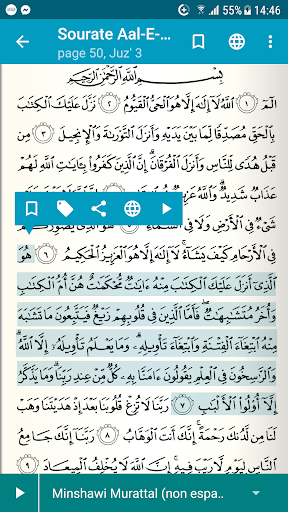 14:46
55%
Sourate Aal-E-...
page 50, Juz' 3
بِسْمِ ٱللَّهِ ٱلرَّحْمَٰنِ ٱلرَّحِيمِ
الٓمٓ ١ ٱللَّهُ لَآ إِلَٰهَ إِلَّا هُوَ ٱلْحَىُّ ٱلْقَيُّومُ ٢ نَزَّلَ عَلَيْكَ ٱلْكِتَٰبَ
بِٱلْحَقِّ مُصَدِّقًا لِّمَا بَيْنَ يَدَيْهِ وَأَنزَلَ ٱلتَّوْرَىٰةَ وَٱلْإِنجِيلَ ٣ مِن
قَبْلُ هُدًى لِّلنَّاسِ وَأَنزَلَ ٱلْفُرْقَانَ ۗ إِنَّ ٱلَّذِينَ كَفَرُوا۟ بِـَٔايَٰتِ ٱللَّهِ لَهُمْ
عَذَابٌ شَدِيدٌ ۗ وَٱللَّهُ
شَىْءٌ فِى ٱلْأَرْضِ وَلَا فِى
فِى ٱلْأَرْحَامِ كَيْفَ يَشَآءُ ۚ لَآ إِلَٰهَ إِلَّا هُوَ ٱلْعَزِيزُ ٱلْحَكِيمُ ٦ هُوَ
ٱلَّذِىٓ أَنزَلَ عَلَيْكَ ٱلْكِتَٰبَ مِنْهُ ءَايَٰتٌ مُّحْكَمَٰتٌ هُنَّ أُمُّ ٱلْكِتَٰبِ
وَأُخَرُ مُتَشَٰبِهَٰتٌ ۖ فَأَمَّا ٱلَّذِينَ فِى قُلُوبِهِمْ زَيْغٌ فَيَتَّبِعُونَ مَا تَشَٰبَهَ
مِنْهُ ٱبْتِغَآءَ ٱلْفِتْنَةِ وَٱبْتِغَآءَ تَأْوِيلِهِۦ ۗ وَمَا يَعْلَمُ تَأْوِيلَهُۥٓ إِلَّا ٱللَّهُ ۗ
وَٱلرَّٰسِخُونَ فِى ٱلْعِلْمِ يَقُولُونَ ءَامَنَّا بِهِۦ كُلٌّ مِّنْ عِندِ رَبِّنَا ۗ وَمَا يَذَّكَّرُ
إِلَّآ أُو۟لُوا۟ ٱلْأَلْبَٰبِ ٧ رَبَّنَا لَا تُزِغْ قُلُوبَنَا بَعْدَ إِذْ هَدَيْتَنَا وَهَبْ
لَنَا مِن لَّدُنكَ رَحْمَةً ۚ إِنَّكَ أَنتَ ٱلْوَهَّابُ ٨ رَبَّنَآ إِنَّكَ جَامِعُ
ٱلنَّاسِ لِيَوْمٍ لَّا رَيْبَ فِيهِ ۚ إِنَّ ٱللَّهَ لَا يُخْلِفُ ٱلْمِيعَادَ ٩
Minshawi Murattal (non espa..